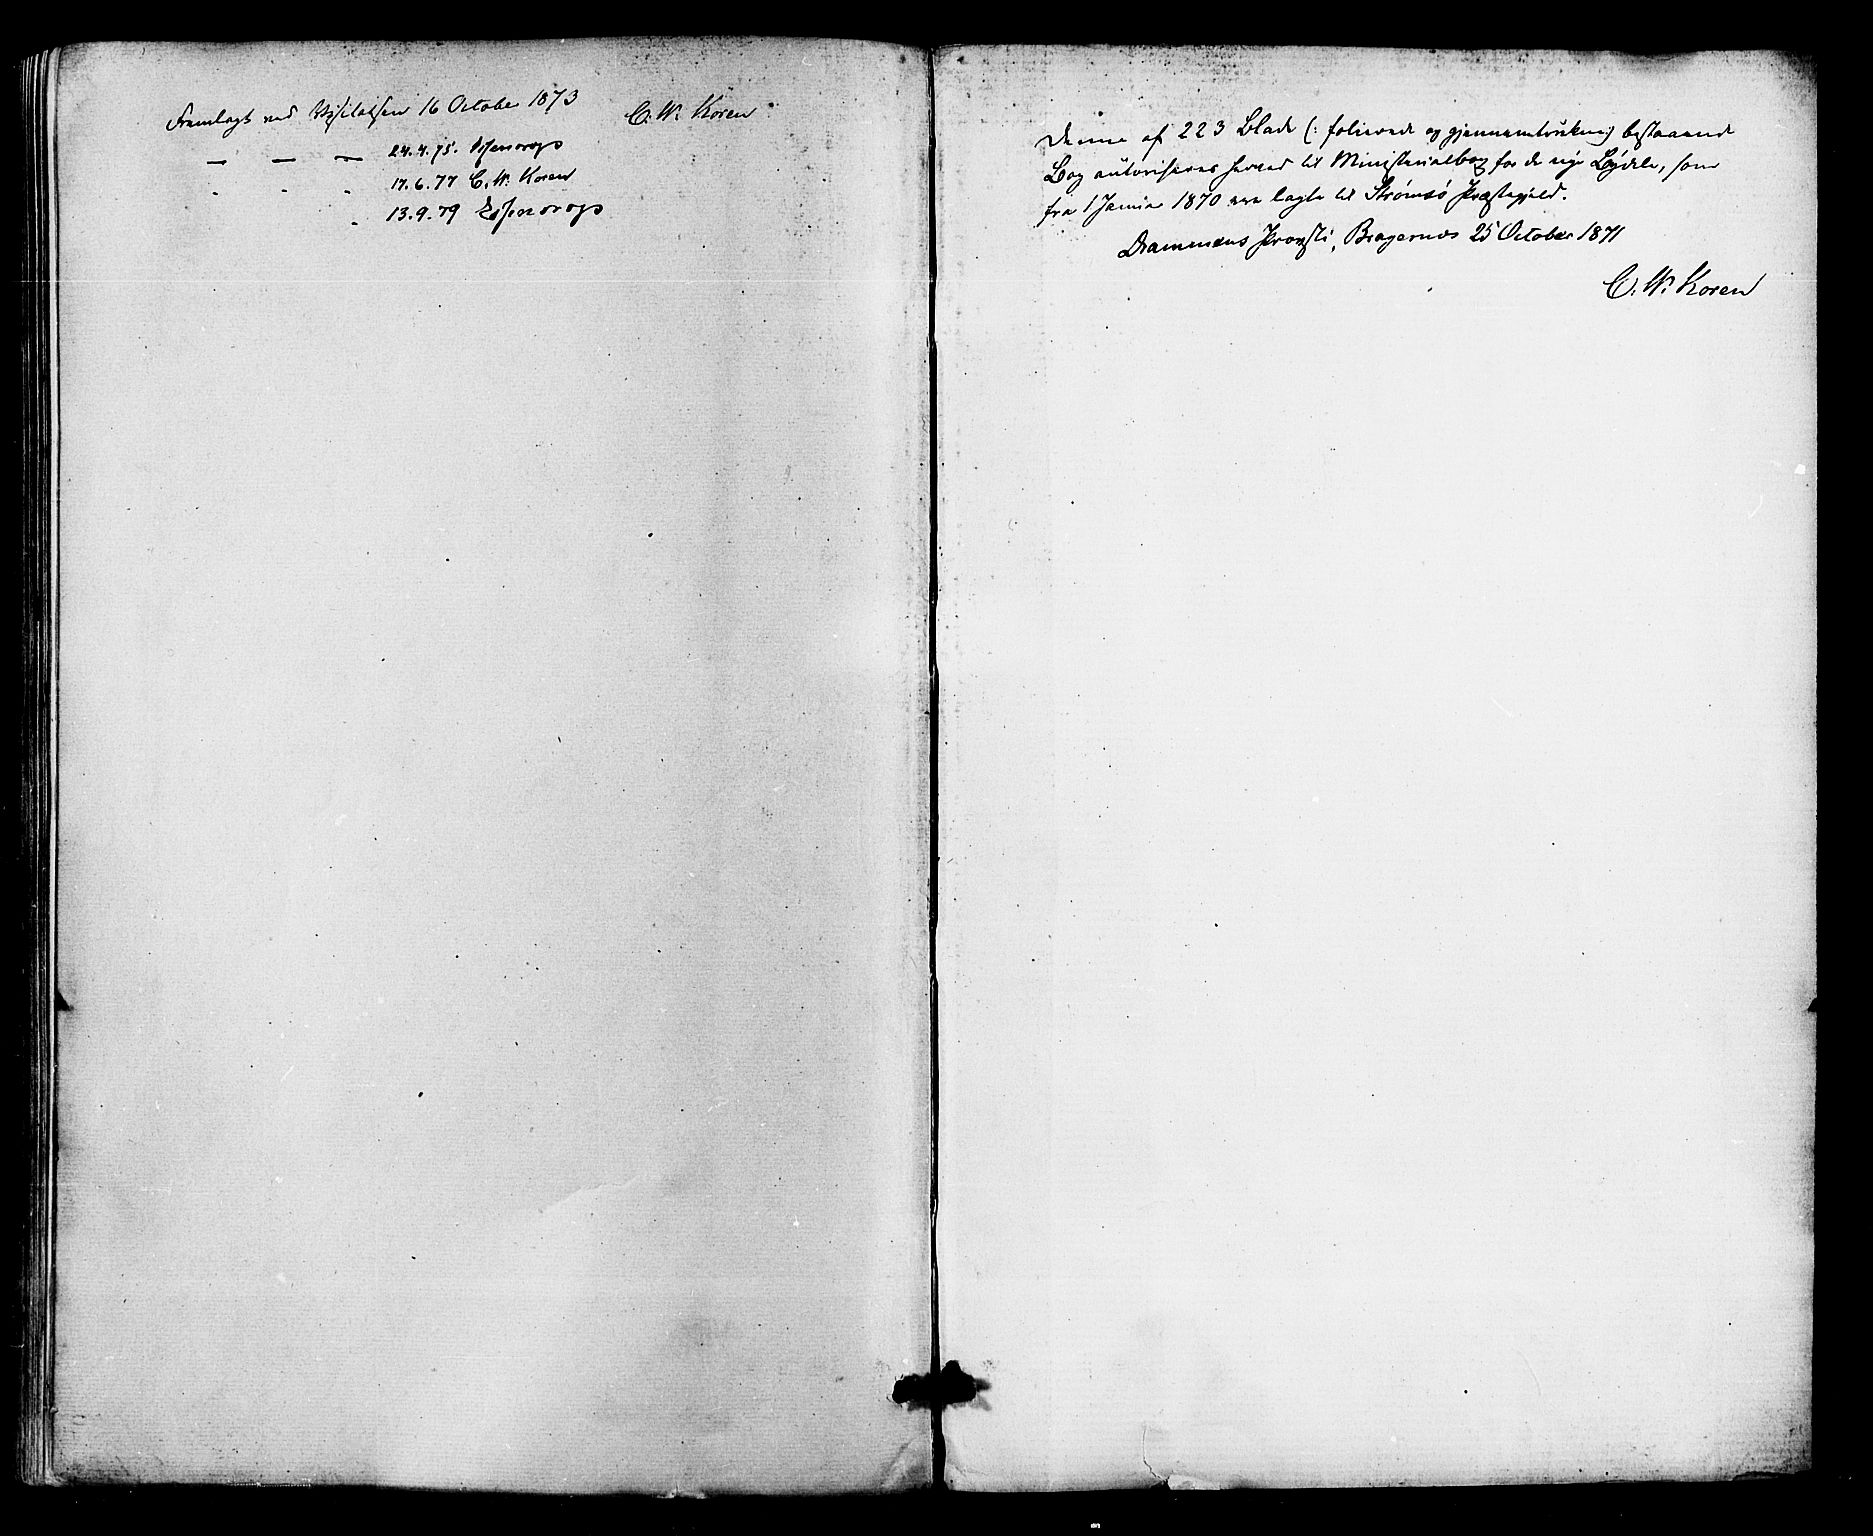 Fremlagt ved Visitatsen 16 October 1873 C. W. Koren
— — — 24.4.75.
" " " 17.6.77 C. W. Koren
" 13.9.79
Denne af 223 Blade (: folierede og gjennemtrukne :) bestaaende
Bog autoriseres herved til Ministerialbog for de nye Bydele, som
fra 1 Januar 1870 ere lagte til Strømsø Præstegjeld.
Drammens Provsti, Bragernæs 25 October 1871
C. W. Koren